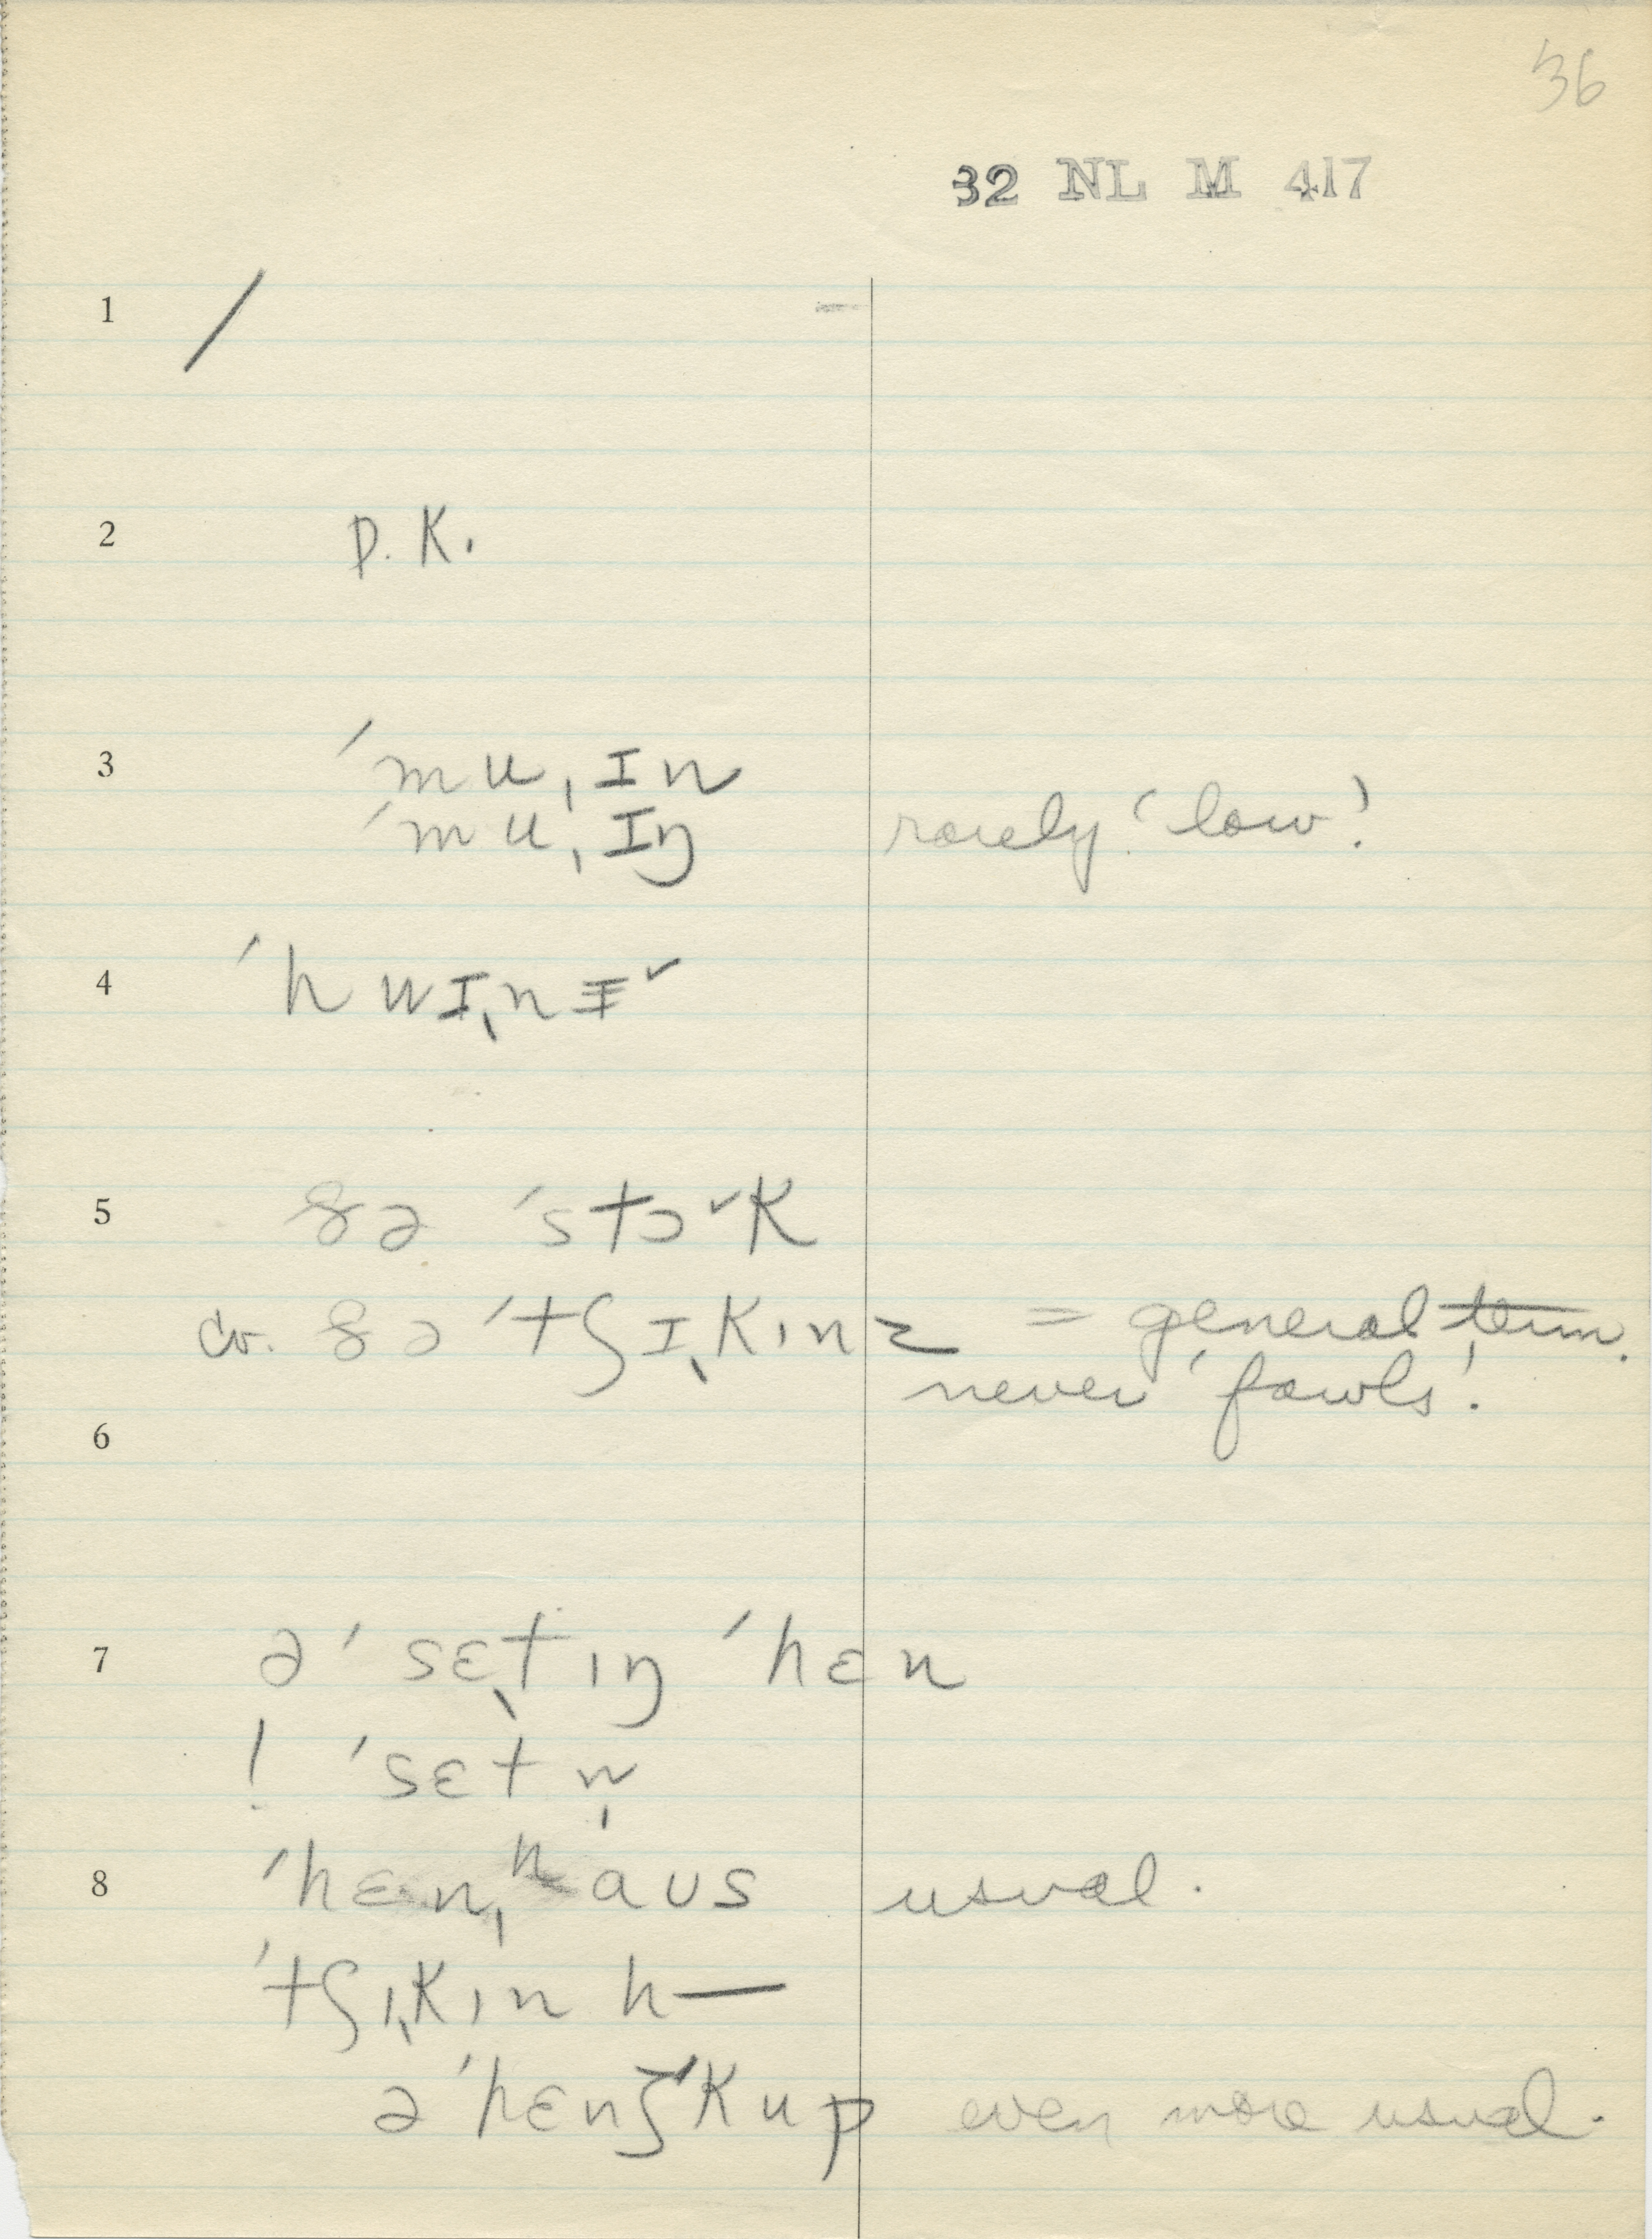 36
32 NL M 417
1 /
2 D.K.
3 ˈmuˌɪn
ˈmuˌɪŋ rarely 'low'.
4 ˈhwɪˌnɪ˅
5 ðə ˈstɔ˅k
cv. ðə ˈtʃɪˌkɪnz = general term.
never 'fowls'.
6
7 ə ˈsɛˌtɪŋ ˈhɛn
! ˈsɛtn̩
8 ˈhɛnˌhaus usual.
ˈtʃɪˌkɪn h—
ə ˈhɛnʒ ˈkup even more usual.